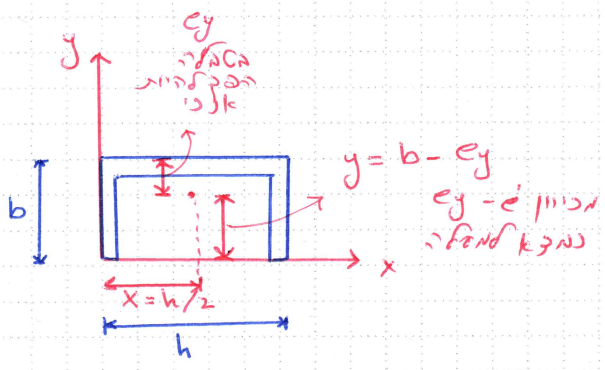 ey
בטבלה
הפך להיות
אנכי
y
y = b - ey
מכיוון ש- ey
נמצא למעלה
b
x
x = h/2
h